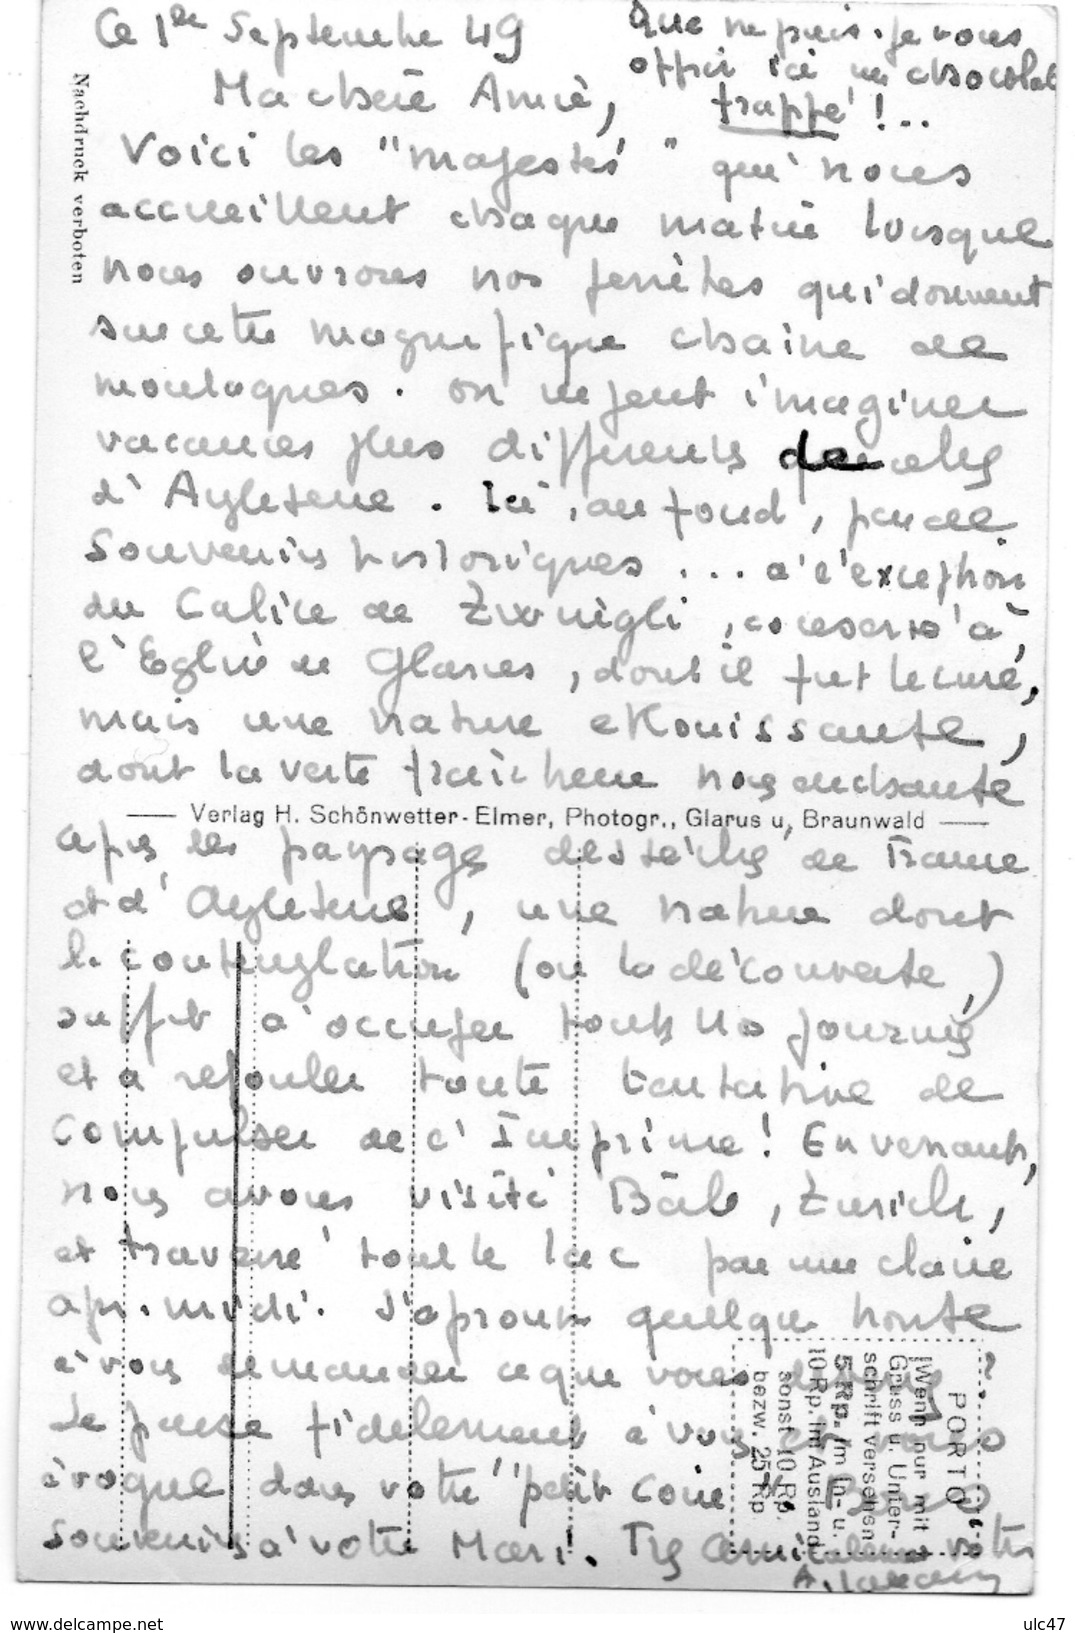 Ce 1er Septembre 49
Que ne puis-je vous
offrir ici un chocolat
frappé !..
Ma chère Amie,
Voici les "majestés" qui nous
accueillent chaque matin lorsque
nous ouvrons nos fenêtres qui donnent
sur cette magnifique chaine de
montagnes. On ne peut imaginer
vacances plus différentes de celles
d'Angleterre. Ici, au fond, pas de
souvenirs historiques ... à l'exception
du Calice de Zwingli, conservé à
l'Eglise de Glarus, dont il fut le curé,
mais une nature éblouissante,
dont la verte fraîcheur nous enchante
Nachdruck verboten
Verlag H. Schönwetter-Elmer, Photogr., Glarus u. Braunwald
après les paysages desséchés de France
et d'Angleterre, une nature dont
la contemplation (ou la découverte,)
suffit à occuper toutes nos journées
et à refouler toute tentative de
compulser de l'Imprimé! En venant,
nous avons visité Bâle, Zurich,
et traversé tout le lac par une claire
apr.midi. J'éprouve quelque honte
à vous demander ce que vous ?
Je pense fidèlement à vous et vous
évoque dans votre "petit coin". Bons
souvenirs à votre Mari. Très amicalement votre
A.
PORTO
(Wenn nur mit
Gruss u. Unter-
schrift versehen
5 Rp. im In- u.
10 Rp. im Ausland
sonst 10 Rp.
bezw. 25 Rp
delcampe.net
ulc47